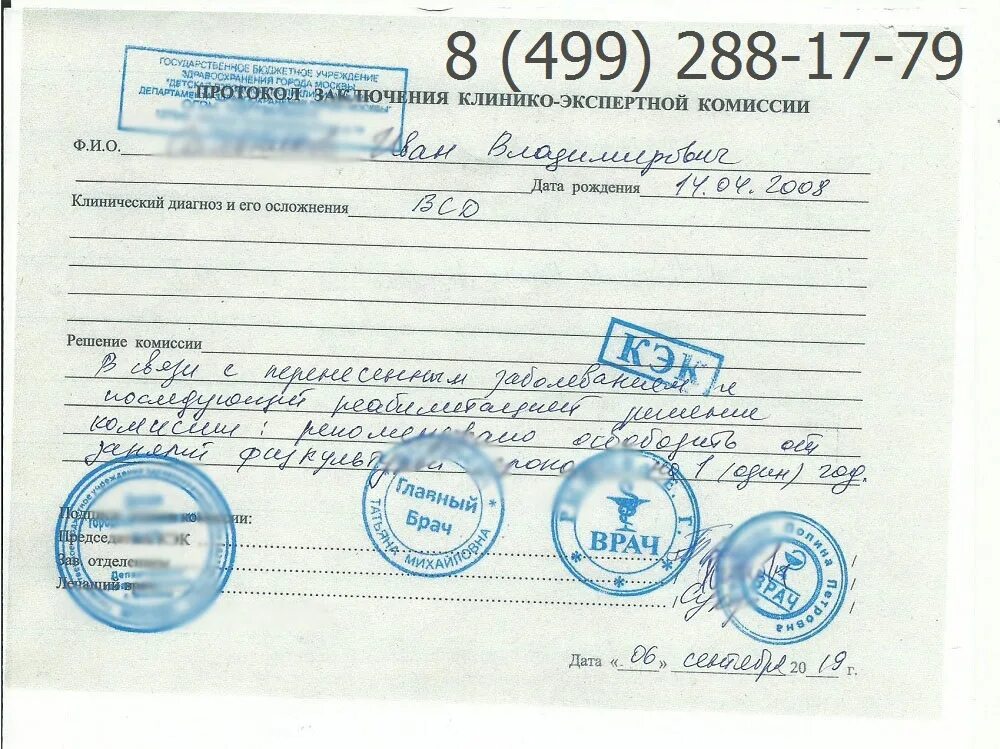 8 (499) 288-17-79
ГОСУДАРСТВЕННОЕ БЮДЖЕТНОЕ УЧРЕЖДЕНИЕ
ЗДРАВООХРАНЕНИЯ ГОРОДА МОСКВЫ
"ДЕТСК
ДЕПАРТАМЕ
ПРОТОКОЛ ЗАКЛЮЧЕНИЯ КЛИНИКО-ЭКСПЕРТНОЙ КОМИССИИ
Ф.И.О. Иван Владимирович
Дата рождения 14.04.2008
Клинический диагноз и его осложнения ВСД
КЭК
Решение комиссии
В связи с перенесенным заболеванием и
последующий реабилитацией решение
комиссии: рекомендовано освободить от
занятий физкультурой сроком на 1 (один) год.
Главный
Врач
ТАТЬЯНА МИХАЙЛОВНА
Е. Г.
ВРАЧ
Полина Петровна
ВРАЧ
комиссии:
Председатель КЭК
Зав. отделением
Лечащий врач
Дата «06» сентября 2019 г.